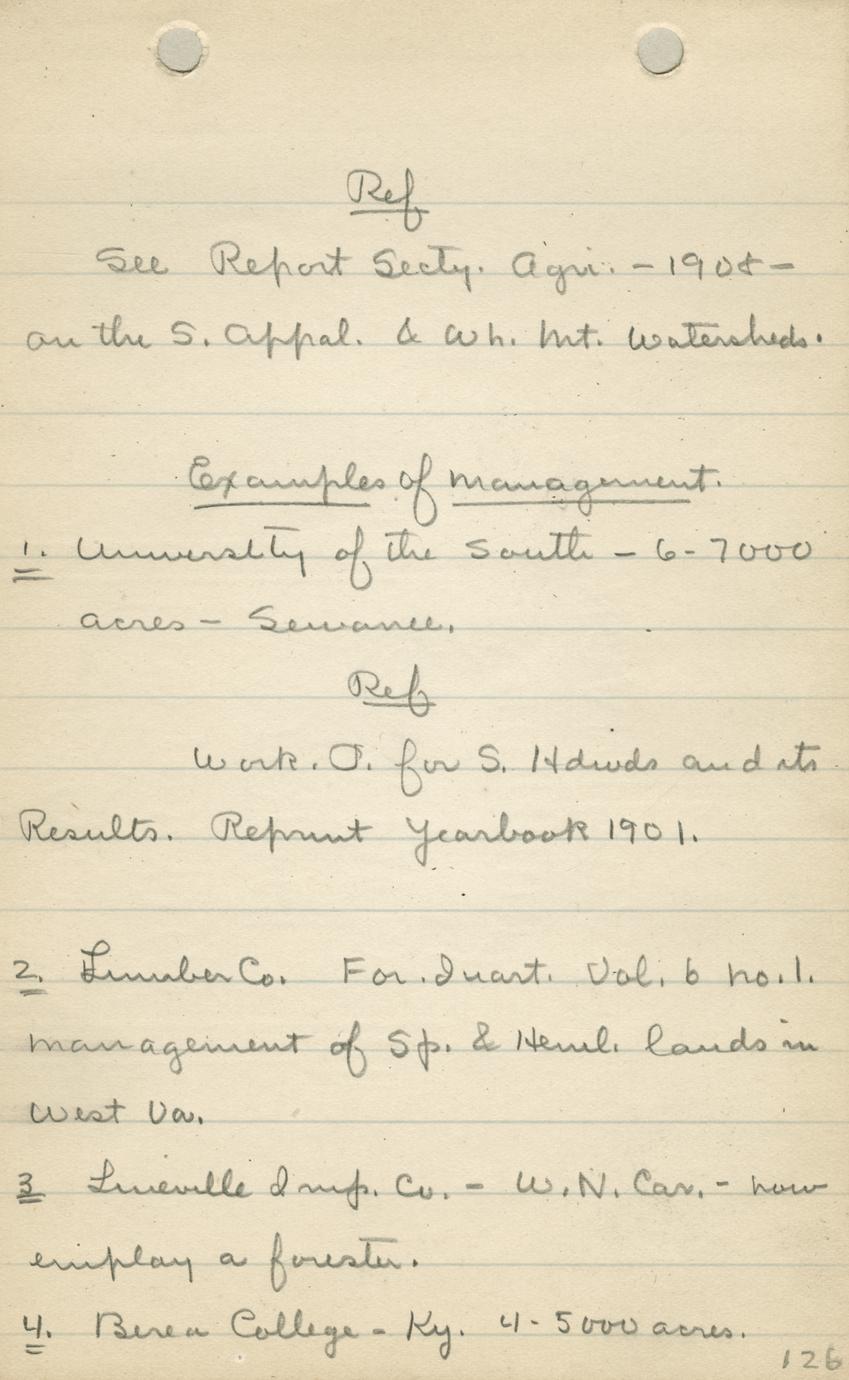 Ref
See Report Secty. Agri. - 1908 -
on the S. Appal. & Wh. Mt. Watersheds.
Examples of management.
1. University of the South - 6-7000
acres - Sewanee.
Ref
Work. O. for S. Hdwds and its
Results. Reprint Yearbook 1901.
2. Lumber Co. For. Quart. Vol. 6 no. 1.
management of Sp. & Heml. lands in
West Va.
3 Lineville Imp. Co. - W. N. Car. - now
employ a forester.
4. Berea College - Ky. 4-5000 acres.
126